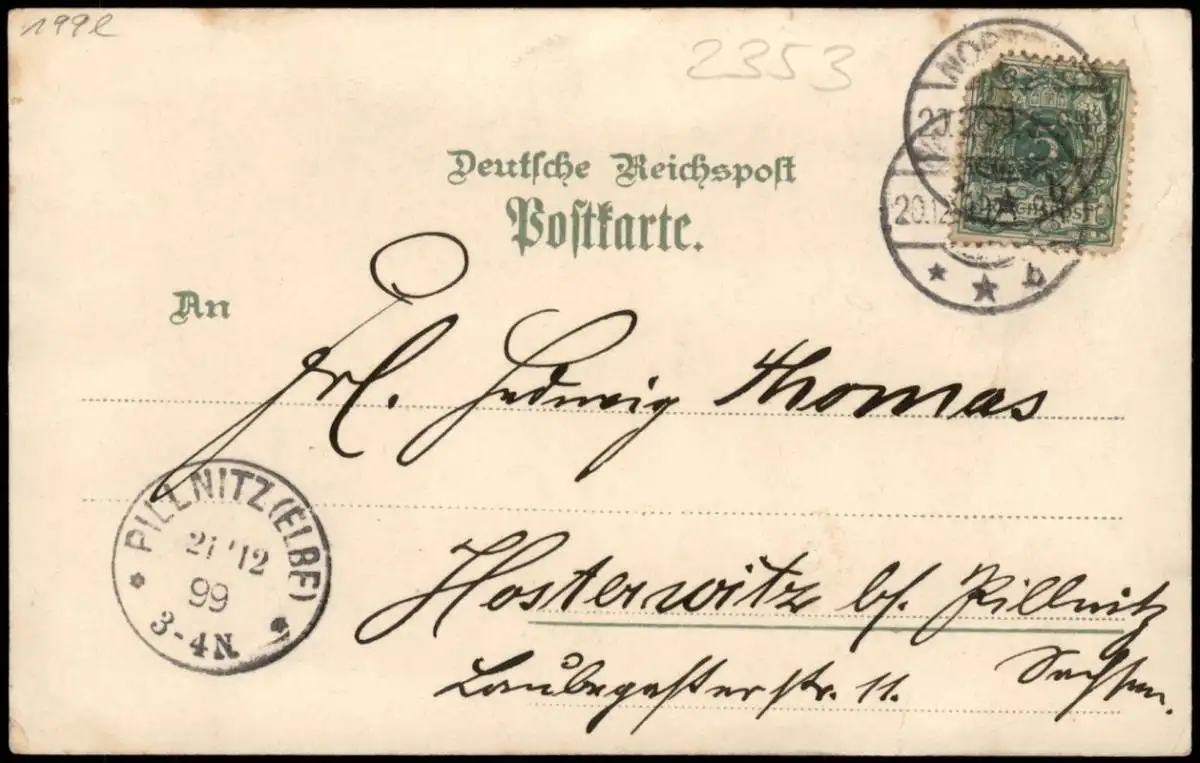 199l
2353
Deutsche Reichspost
Postkarte.
An
20.12
5
REICHSPOST
b
Frl. Hedwig Thomas
PILLNITZ (ELBE)
21/12
99
3-4N.
Hosterwitz b/. Pillnitz
Laubegasterstr. 11. Sachsen.